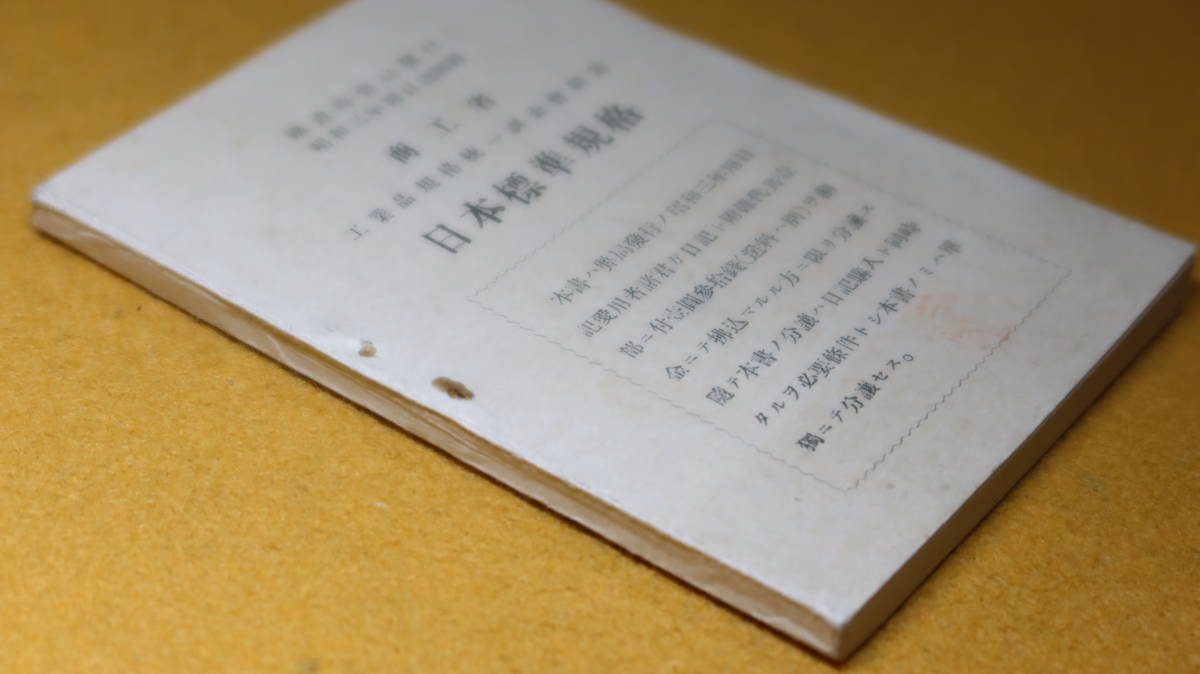 昭和三年用日記
商工省
工業品規格統一調査會
日本標準規格
本書ハ弊局發行ノ昭和三年用日
記愛用者諸君ガ日記ト附錄代共壹
部ニ付壹圓參拾錢(送料ハ別)ヲ前
金ニテ拂込マルル方ニ限リ分讓ス
隨テ本書ノ分讓ハ日記購入ト同時
タルヲ必要條件トシ本書ノミハ單
獨ニテ分讓セス。